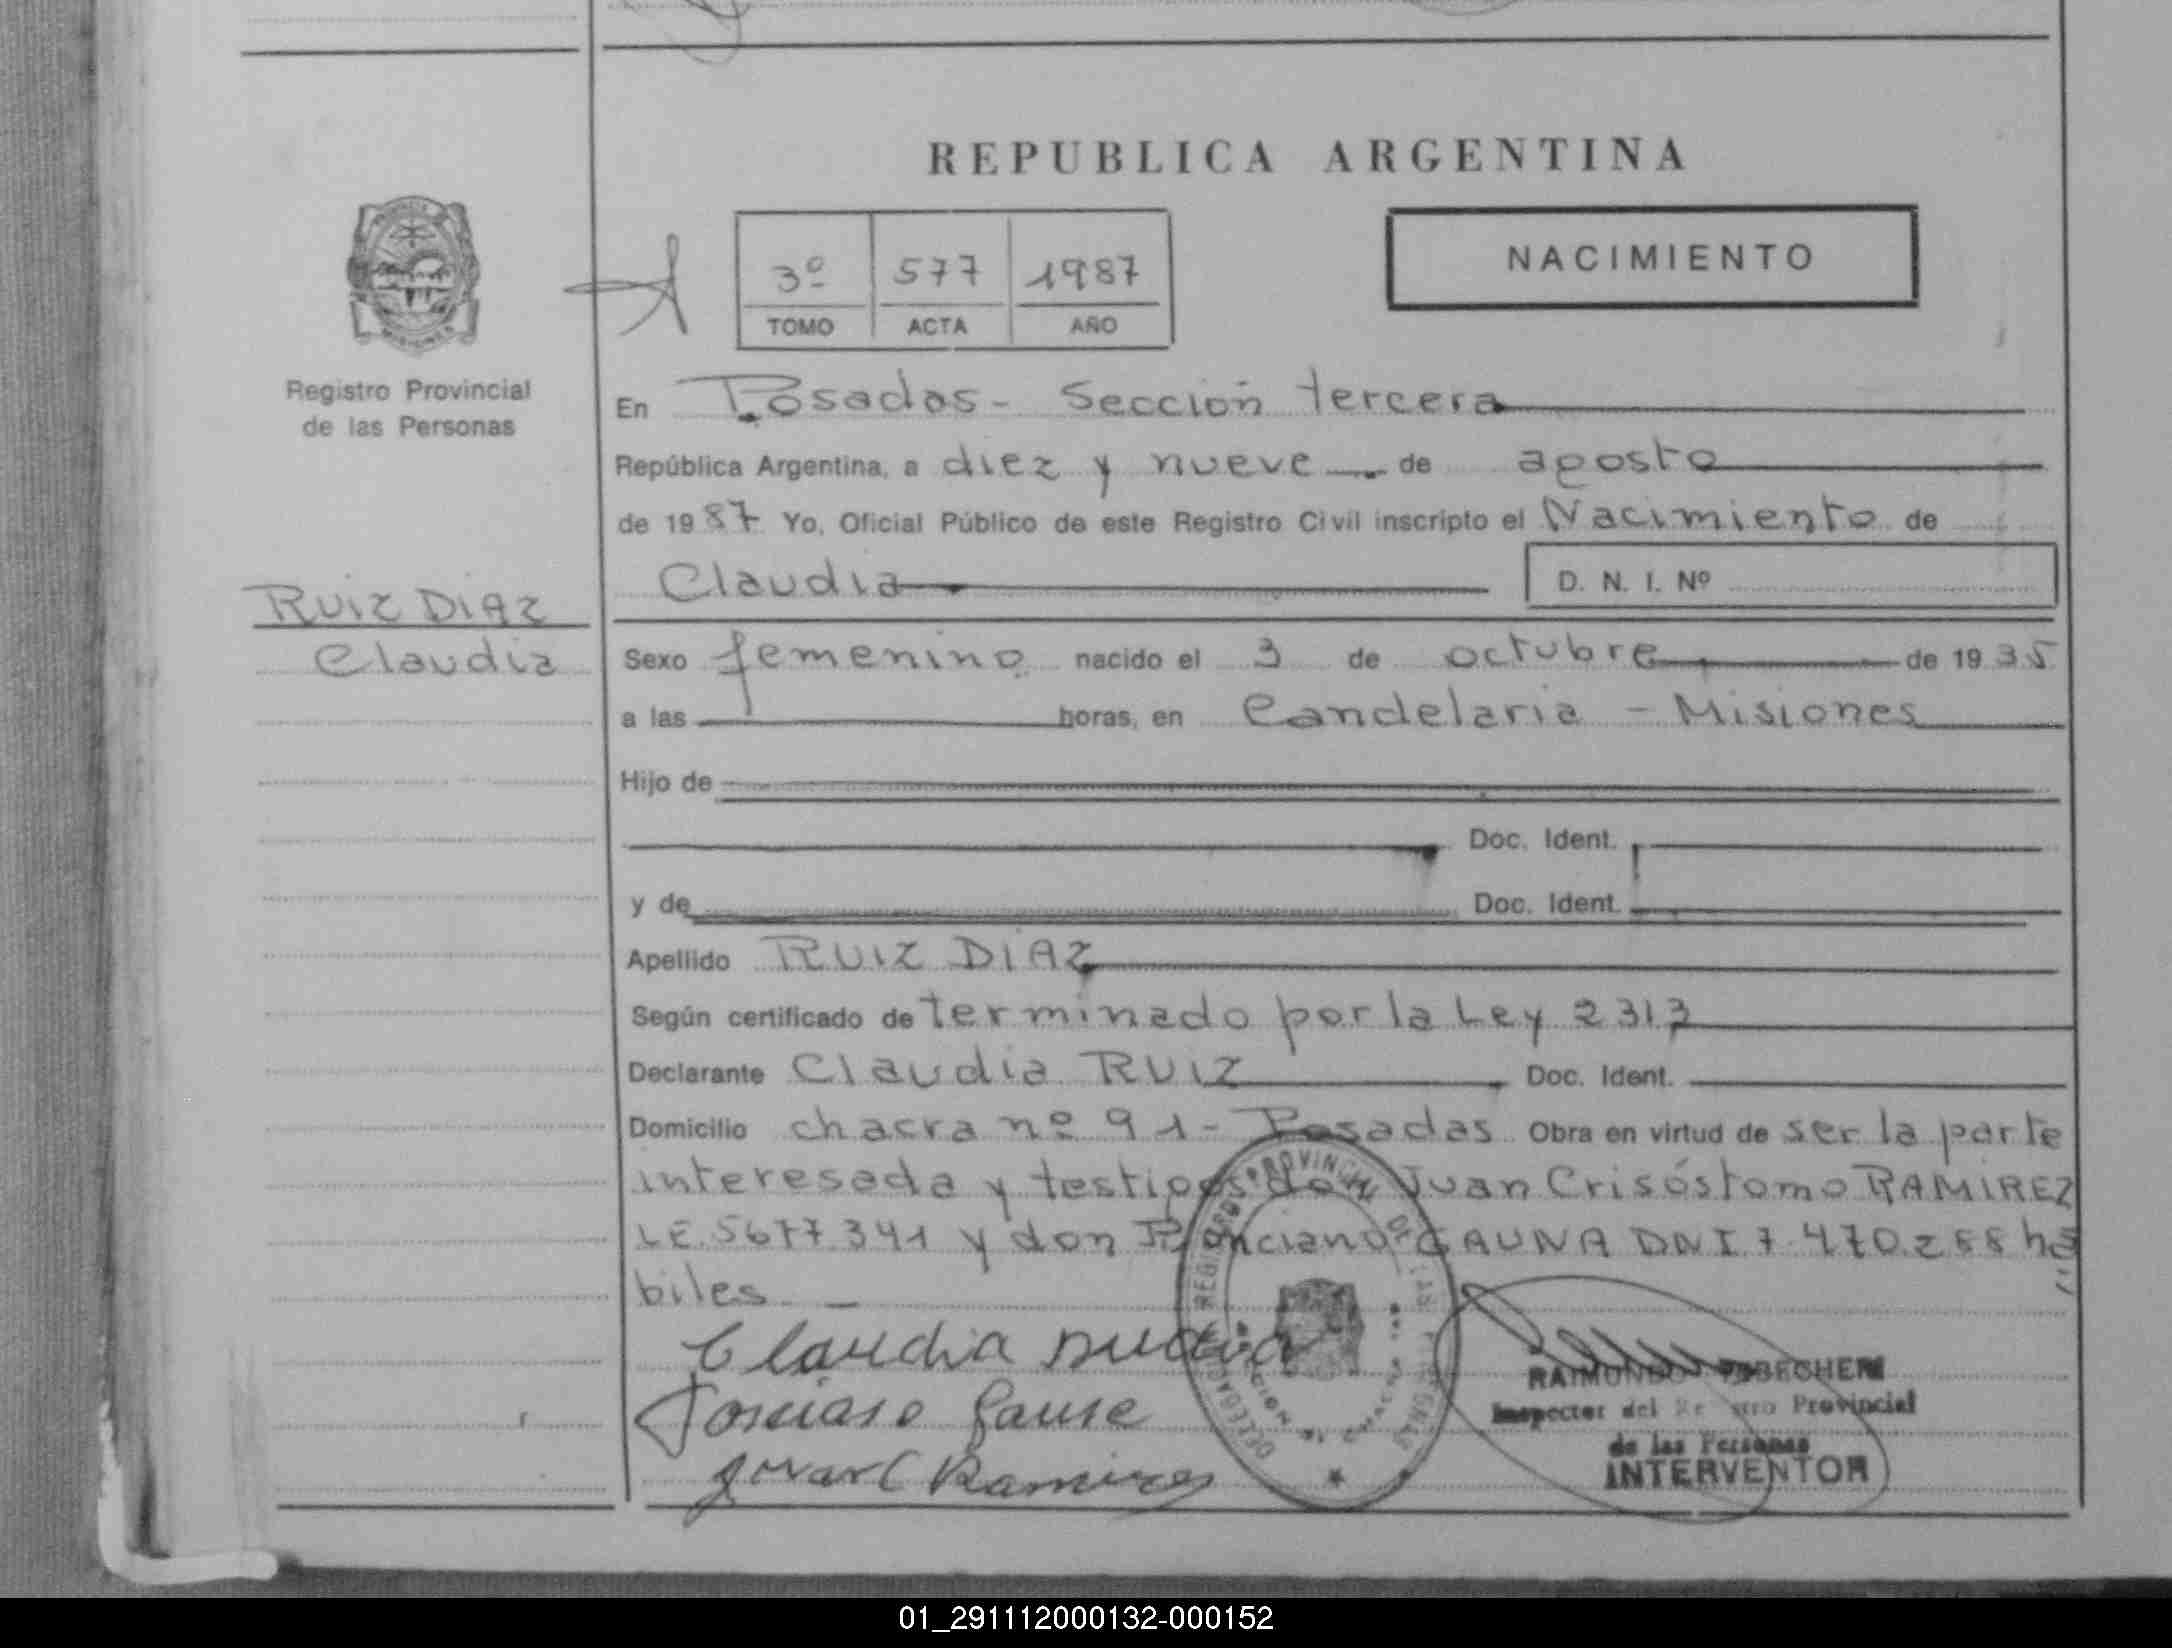 REPUBLICA ARGENTINA
NACIMIENTO
3º 577 1987
TOMO ACTA AÑO
Registro Provincial
de las Personas
En Posadas - Sección tercera
República Argentina, a diez y nueve de agosto
de 1987 Yo, Oficial Público de este Registro Civil inscripto el Nacimiento de
Claudia D. N. I. Nº
RUIZ DIAZ
Claudia
Sexo femenino nacido el 3 de octubre de 1935
a las horas, en Candelaria - Misiones
Hijo de
Doc. Ident.
y de Doc. Ident.
Apellido RUIZ DIAZ
Según certificado de terminado por la Ley 2313
Declarante Claudia RUIZ Doc. Ident.
Domicilio chacra nº 91 - Posadas Obra en virtud de ser la parte
interesada y testigos do Juan Crisóstomo RAMIREZ
LE 5677341 y don Ponciano GAUNA DNI 7.470.288 há
biles -
Claudia
Ramires
RAIMUNDO
Inspector del Provincial
de las Personas
INTERVENTOR
01_291112000132-000152